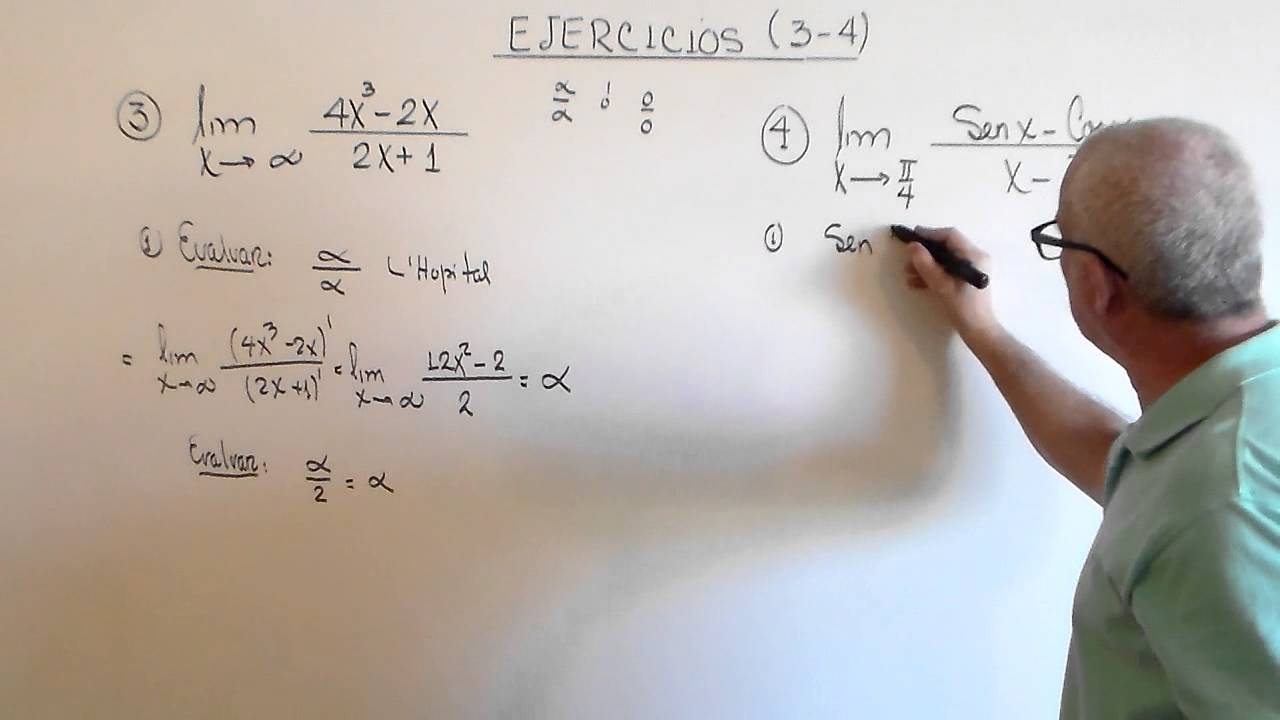 EJERCICIOS (3-4)
∝/∝ ó 0/0
③ lim x→∞ (4x³-2x)/(2x+1)
① Evaluar: ∝/∝ L'Hopital
= lim x→∞ (4x³-2x)'/(2x+1)' = lim x→∞ (12x²-2)/2 = ∝
Evaluar: ∝/2 = ∝
④ lim x→π/4 Sen x -
x -
① Sen